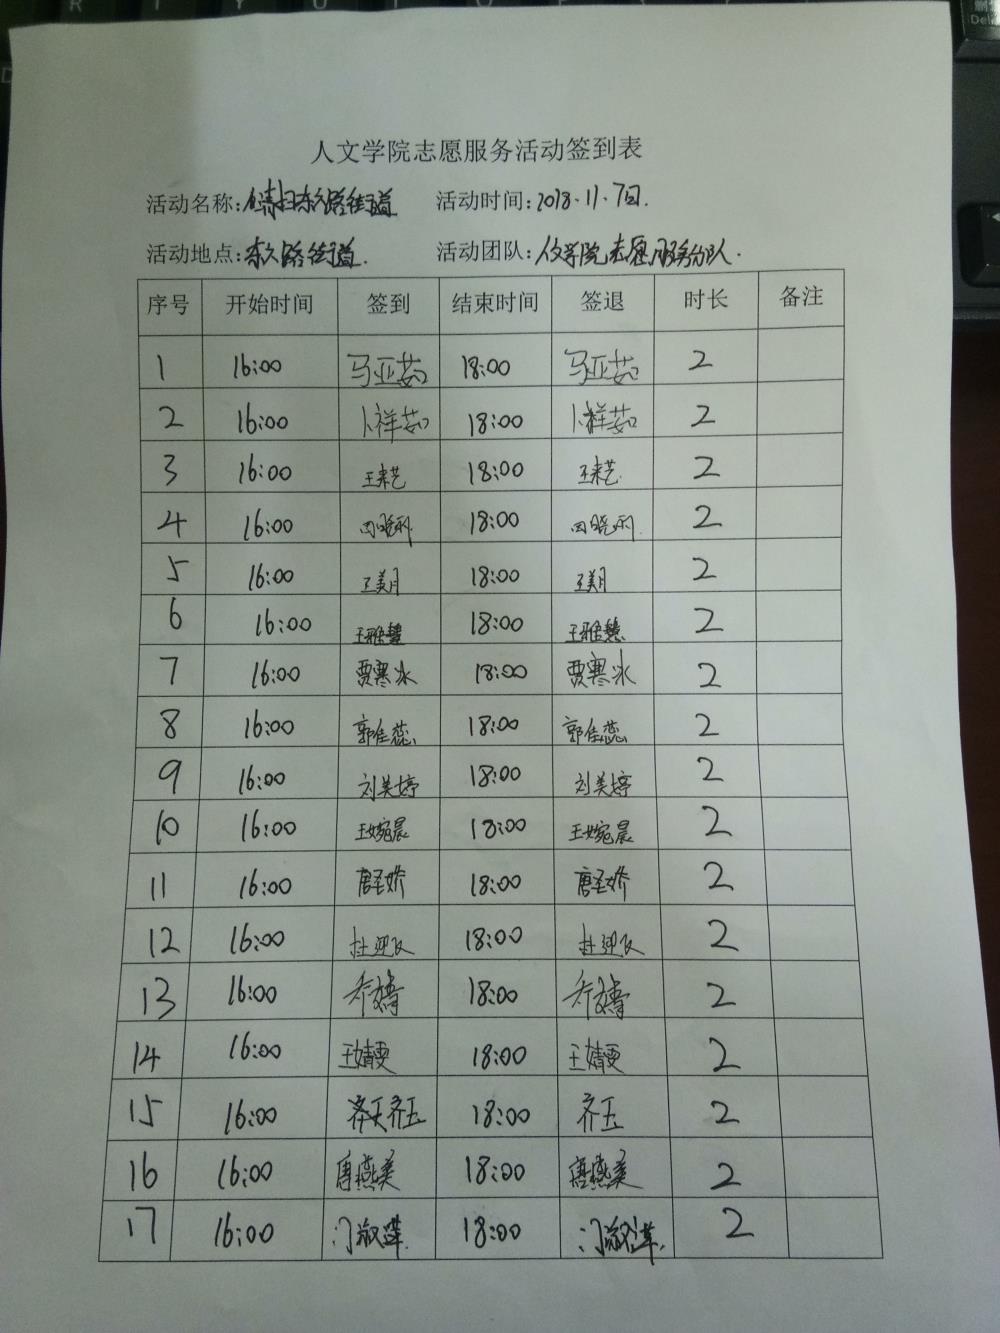 人文学院志愿服务活动签到表
活动名称:清扫东久路街道 活动时间:2018.11.7日.
活动地点:东久路街道. 活动团队:人文学院志愿服务分队.
序号 开始时间 签到 结束时间 签退 时长 备注
1 16:00 马亚茹 18:00 马亚茹 2
2 16:00 卜祥茹 18:00 卜祥茹 2
3 16:00 王来艺 18:00 王来艺 2
4 16:00 18:00 2
5 16:00 王美月 18:00 王美月 2
6 16:00 王雅慧 18:00 王雅慧 2
7 16:00 贾寒冰 18:00 贾寒冰 2
8 16:00 郭佳蕊 18:00 郭佳蕊 2
9 16:00 刘美婷 18:00 刘美婷 2
10 16:00 王婉晨 18:00 王婉晨 2
11 16:00 唐圣娇 18:00 唐圣娇 2
12 16:00 18:00 2
13 16:00 18:00 2
14 16:00 王婧雯 18:00 王婧雯 2
15 16:00 齐玉 18:00 齐玉 2
16 16:00 唐燕美 18:00 唐燕美 2
17 16:00 门淑莲 18:00 门淑莲 2